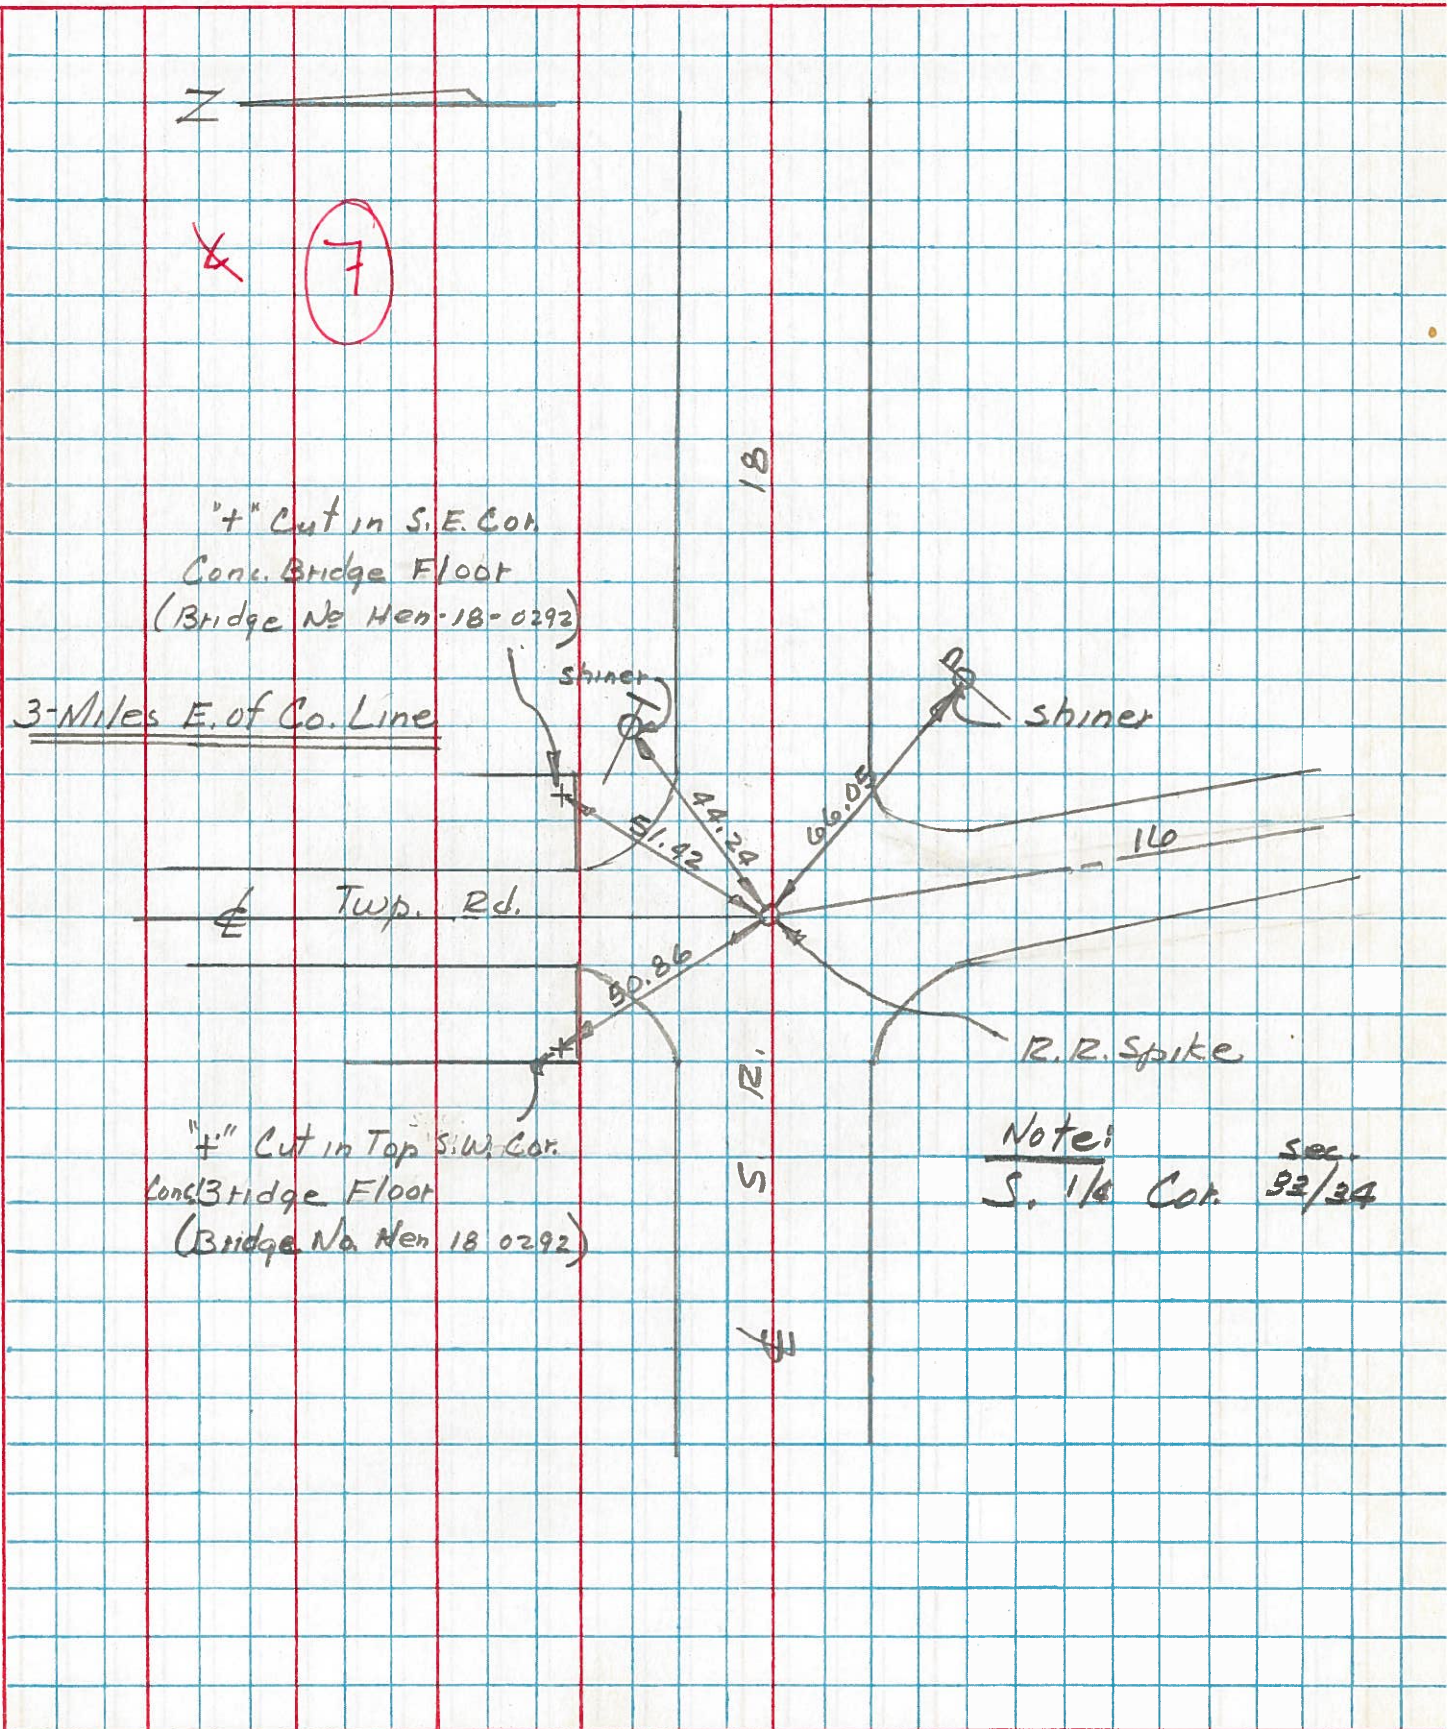 Z
7
18
"+" Cut in S.E. Cor.
Conc. Bridge Floor
(Bridge No Hen-18-0292)
shiner
3-Miles E. of Co. Line
shiner
44.24
66.05
51.42
16
℄ Twp. Rd.
50.86
R.R. Spike
S. R.
"+" Cut in Top S.W. Cor.
Conc. Bridge Floor
(Bridge No. Hen 18 0292)
Note:
sec.
S. 1/4 Cor. 33/34
℄